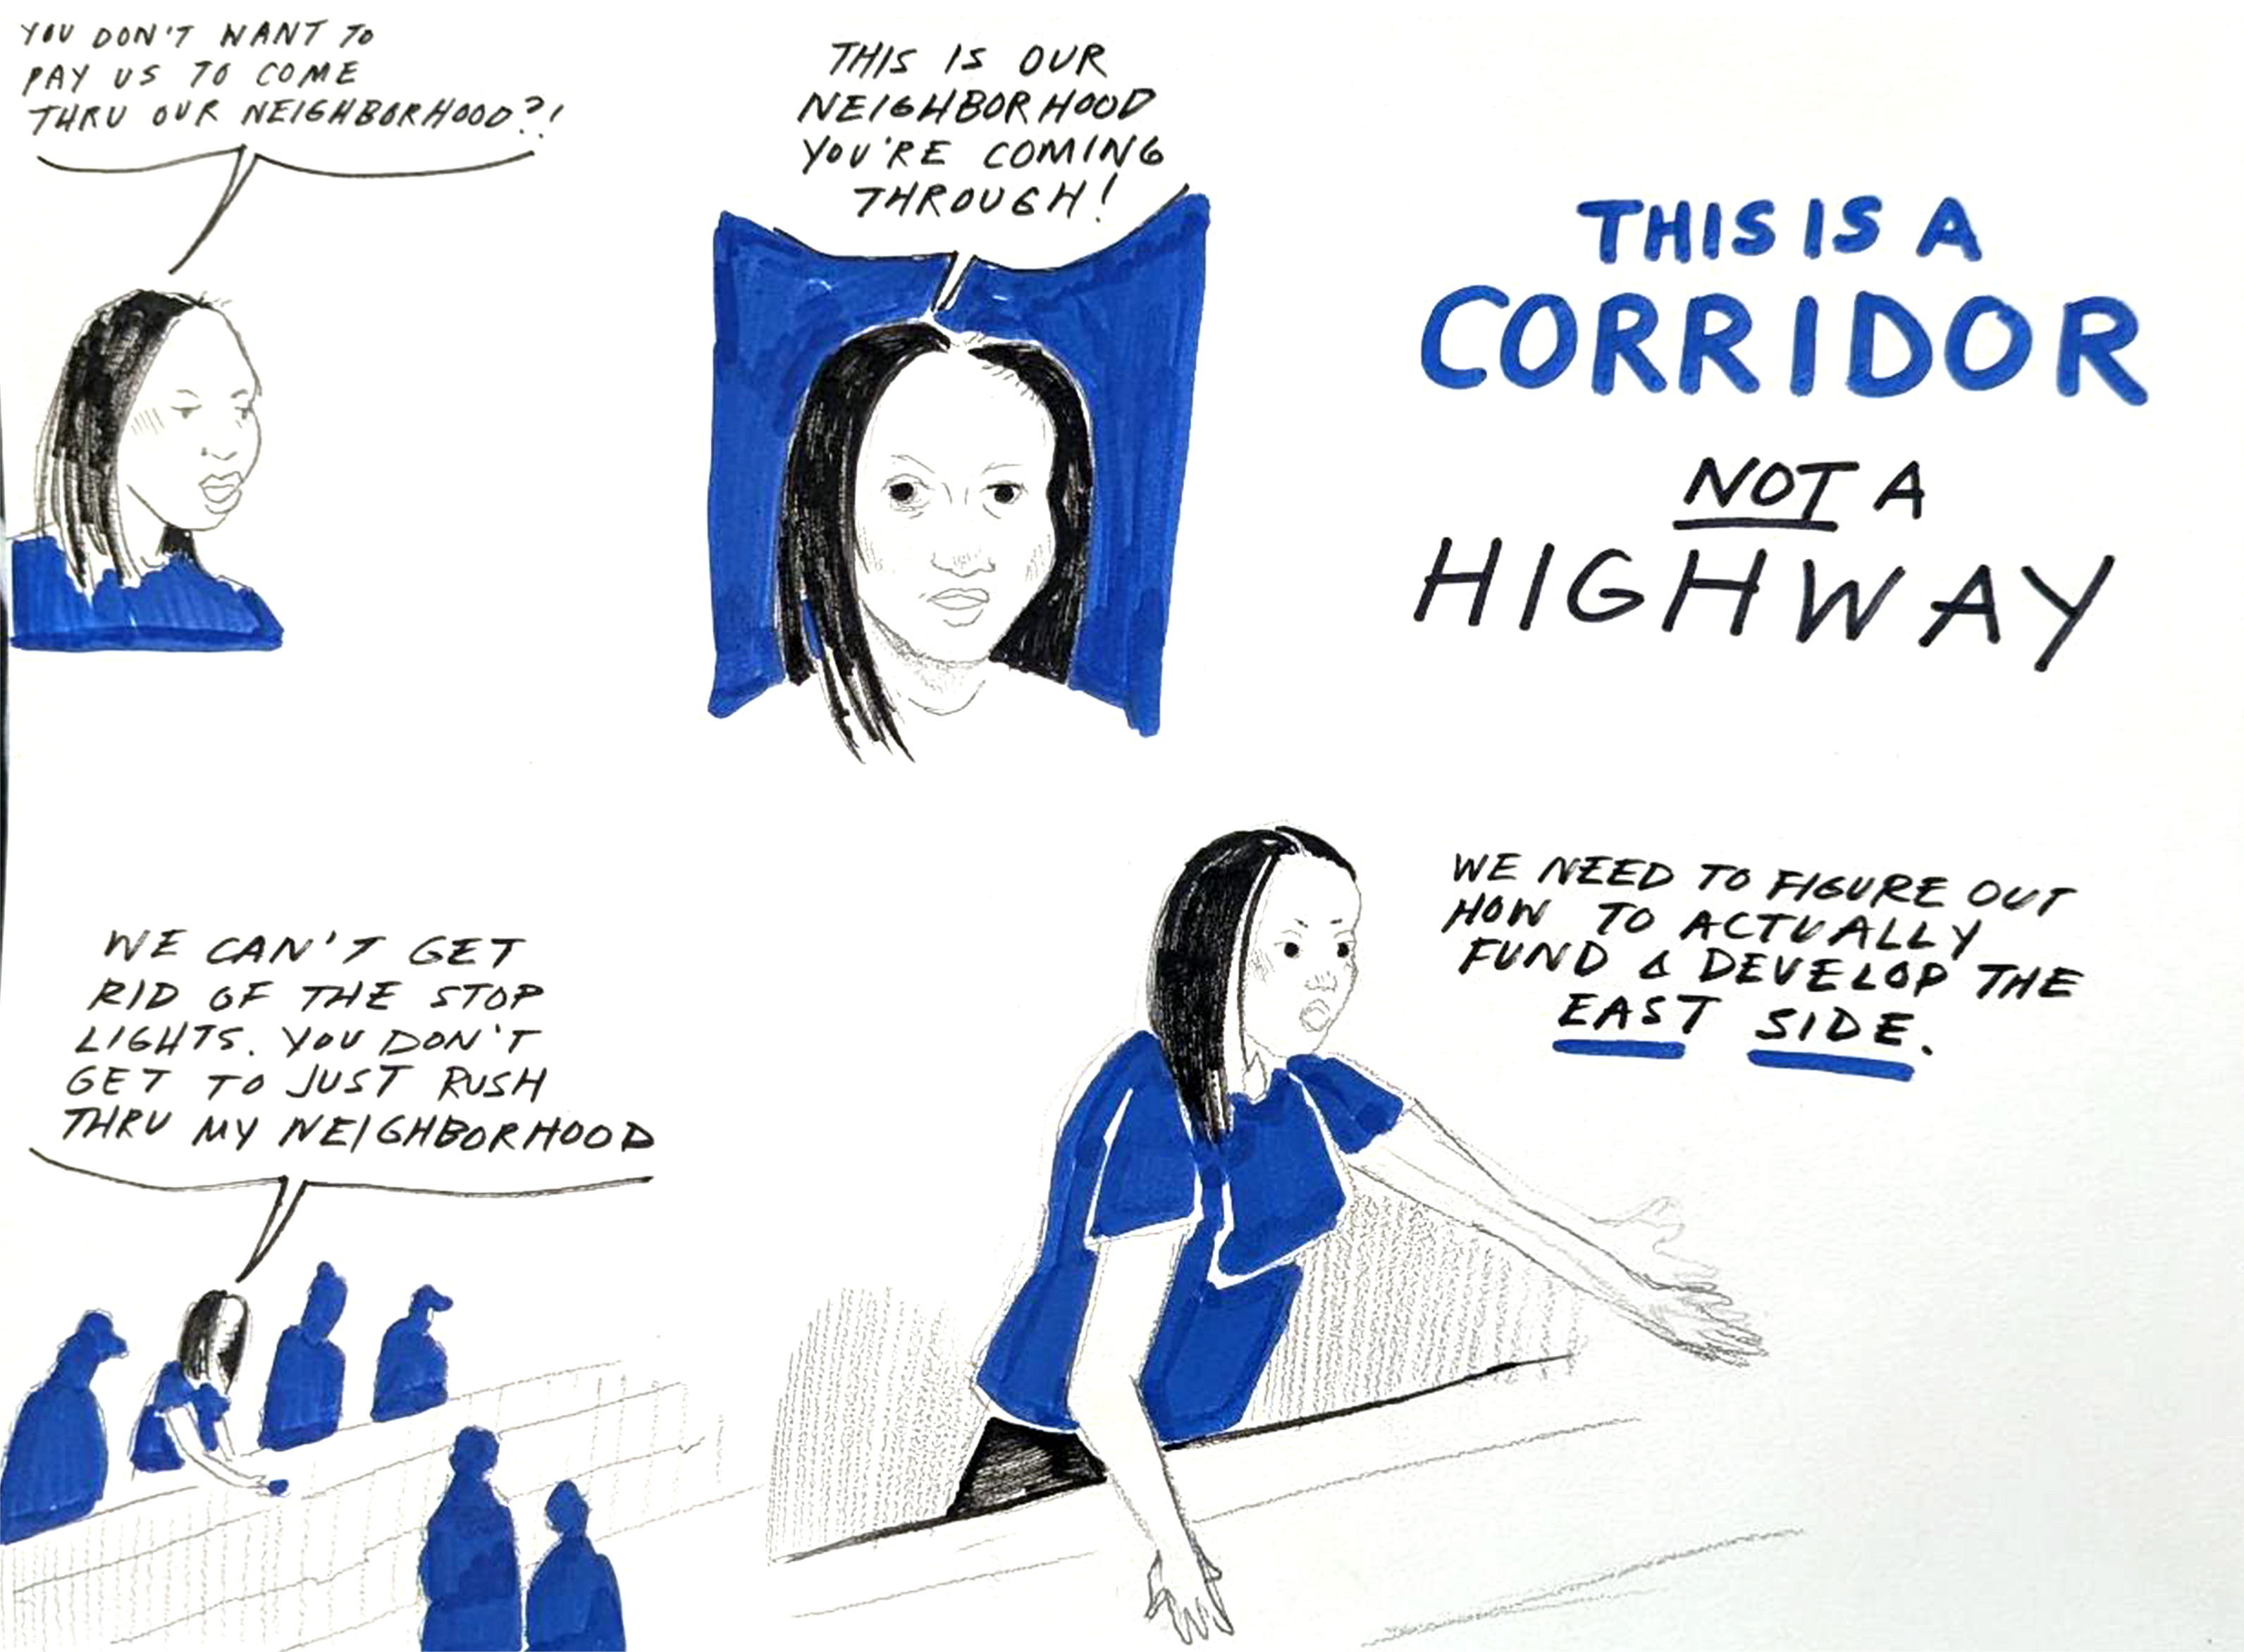 YOU DON'T WANT TO
PAY US TO COME
THRU OUR NEIGHBORHOOD?!
THIS IS OUR
NEIGHBORHOOD
YOU'RE COMING
THROUGH!
THIS IS A
CORRIDOR
NOT A
HIGHWAY
WE CAN'T GET
RID OF THE STOP
LIGHTS. YOU DON'T
GET TO JUST RUSH
THRU MY NEIGHBORHOOD
WE NEED TO FIGURE OUT
HOW TO ACTUALLY
FUND & DEVELOP THE
EAST SIDE.